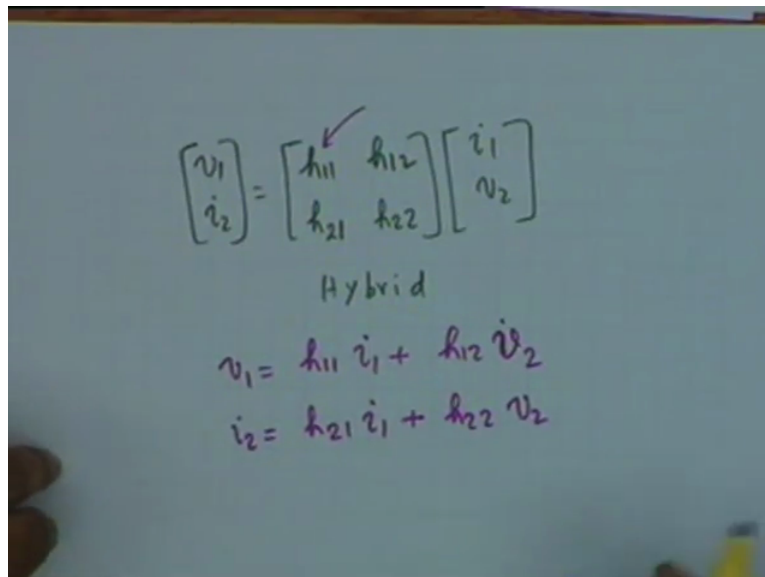 [v1 i2] = [h11 h12 h21 h22] [i1 v2]
Hybrid
v1 = h11 i1 + h12 v2
i2 = h21 i1 + h22 v2